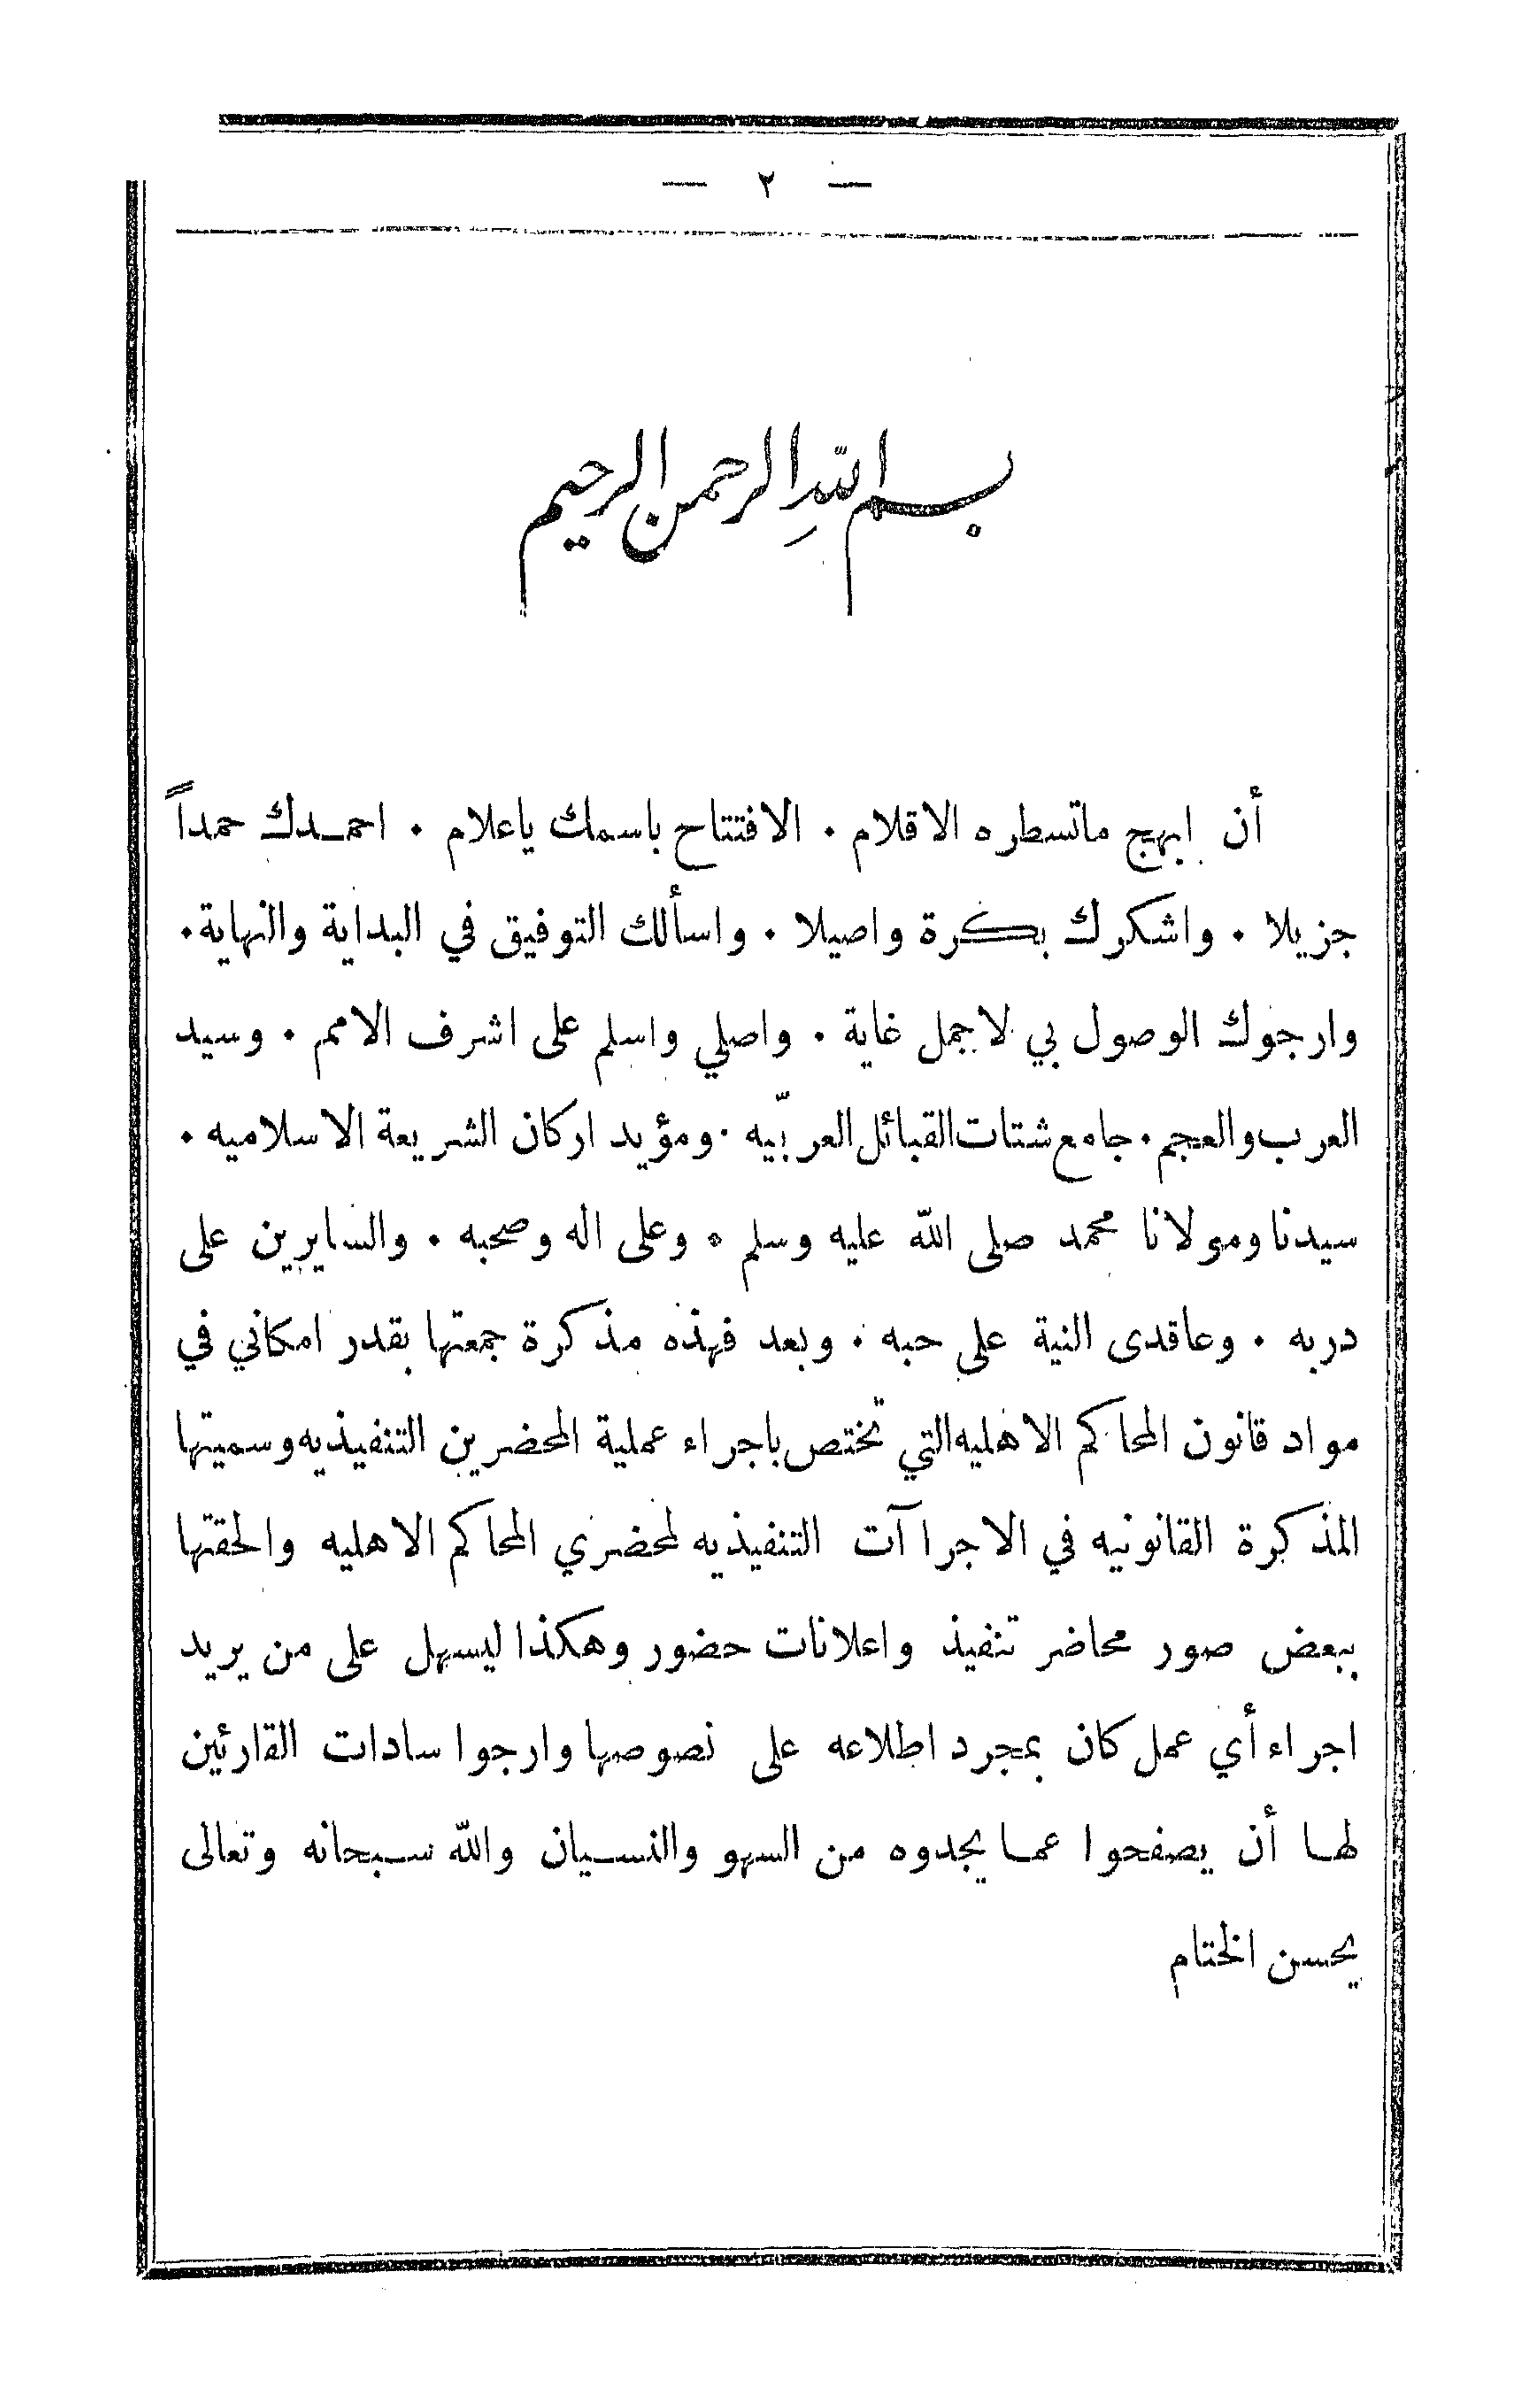 — ٢ —
بسم الله الرحمن الرحيم
أن ابهج ماتسطره الاقلام . الافتتاح باسمك ياعلام . احمدك حمداً
جزيلا . واشكرك بكرة واصيلا . واسألك التوفيق في البداية والنهاية .
وارجوك الوصول بي لاجمل غاية . واصلي واسلم على اشرف الامم . وسيد
العرب والعجم . جامع شتات القبائل العربيّه . ومؤيد اركان الشريعة الاسلاميه .
سيدنا ومولانا محمد صلى الله عليه وسلم . وعلى اله وصحبه . والسايرين على
دربه . وعاقدى النية على حبه . وبعد فهذه مذكرة جمعتها بقدر امكاني في
مواد قانون المحاكم الاهليه التي تختص باجراء عملية المحضرين التنفيذيه وسميتها
المذكرة القانونيه في الاجراآت التنفيذيه لمحضري المحاكم الاهليه والحقتها
ببعض صور محاضر تنفيذ واعلانات حضور وهكذا ليسهل على من يريد
اجراء أي عمل كان بمجرد اطلاعه على نصوصها وارجوا سادات القارئين
لها أن يصفحوا عما يجدوه من السهو والنسيان والله سبحانه وتعالى
يحسن الختام